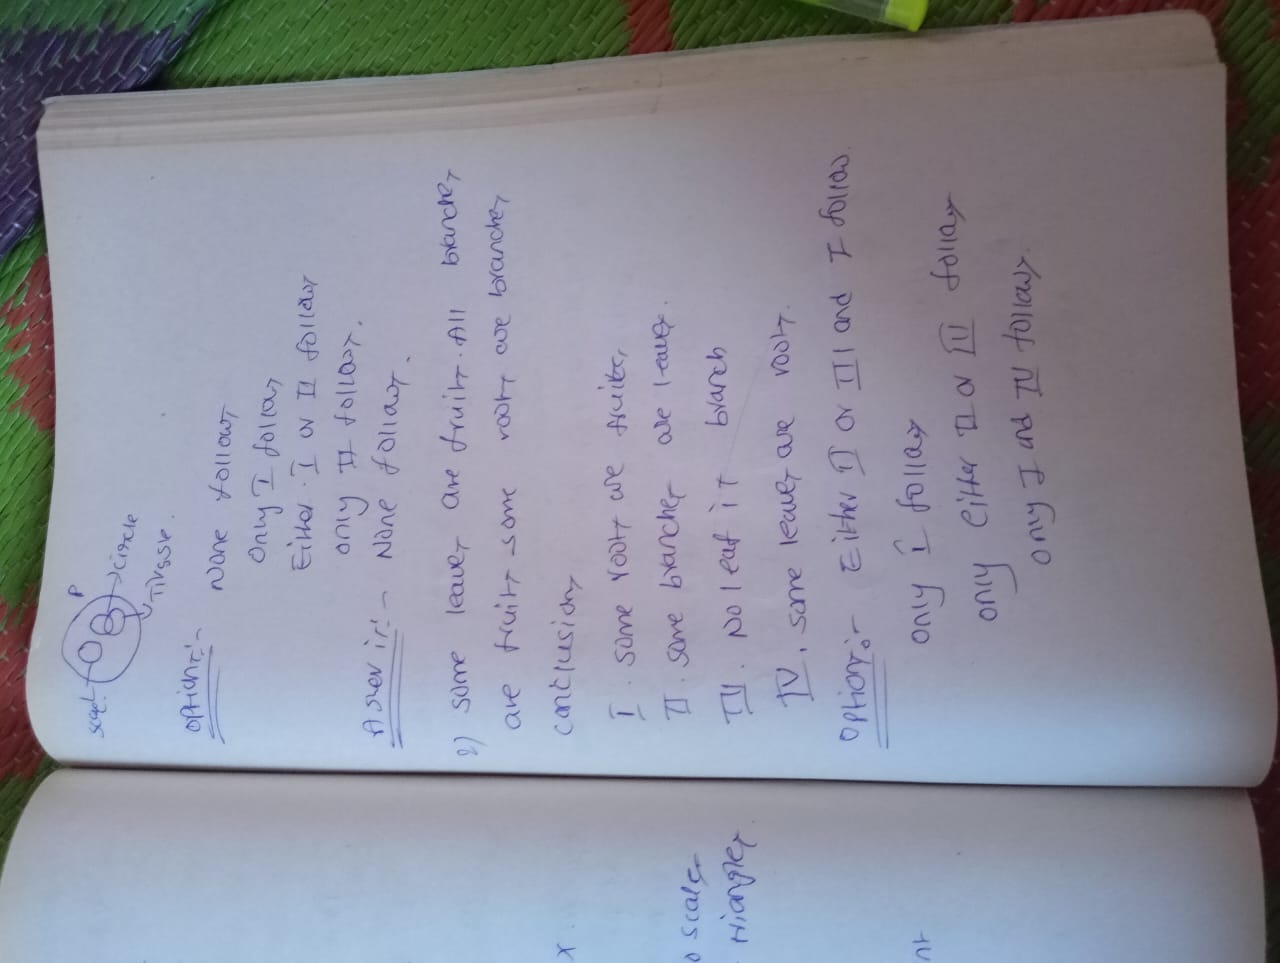 P
scal
circle
Tissue.
Option:-
None follow
Only I follow
Either I or II follow
only II follow.
Aswer is:- None follow.
2) some leaves are fruits. All branches
are fruits some roots are branches
conclusion
I. some roots are fruits,
II. some branches are leaves.
III. No leaf is branch
IV. some leaves are roots.
Option:- Either II or III and I follow.
only I follow
only Either II or III follow
only I and IV follow.
scales
triangles